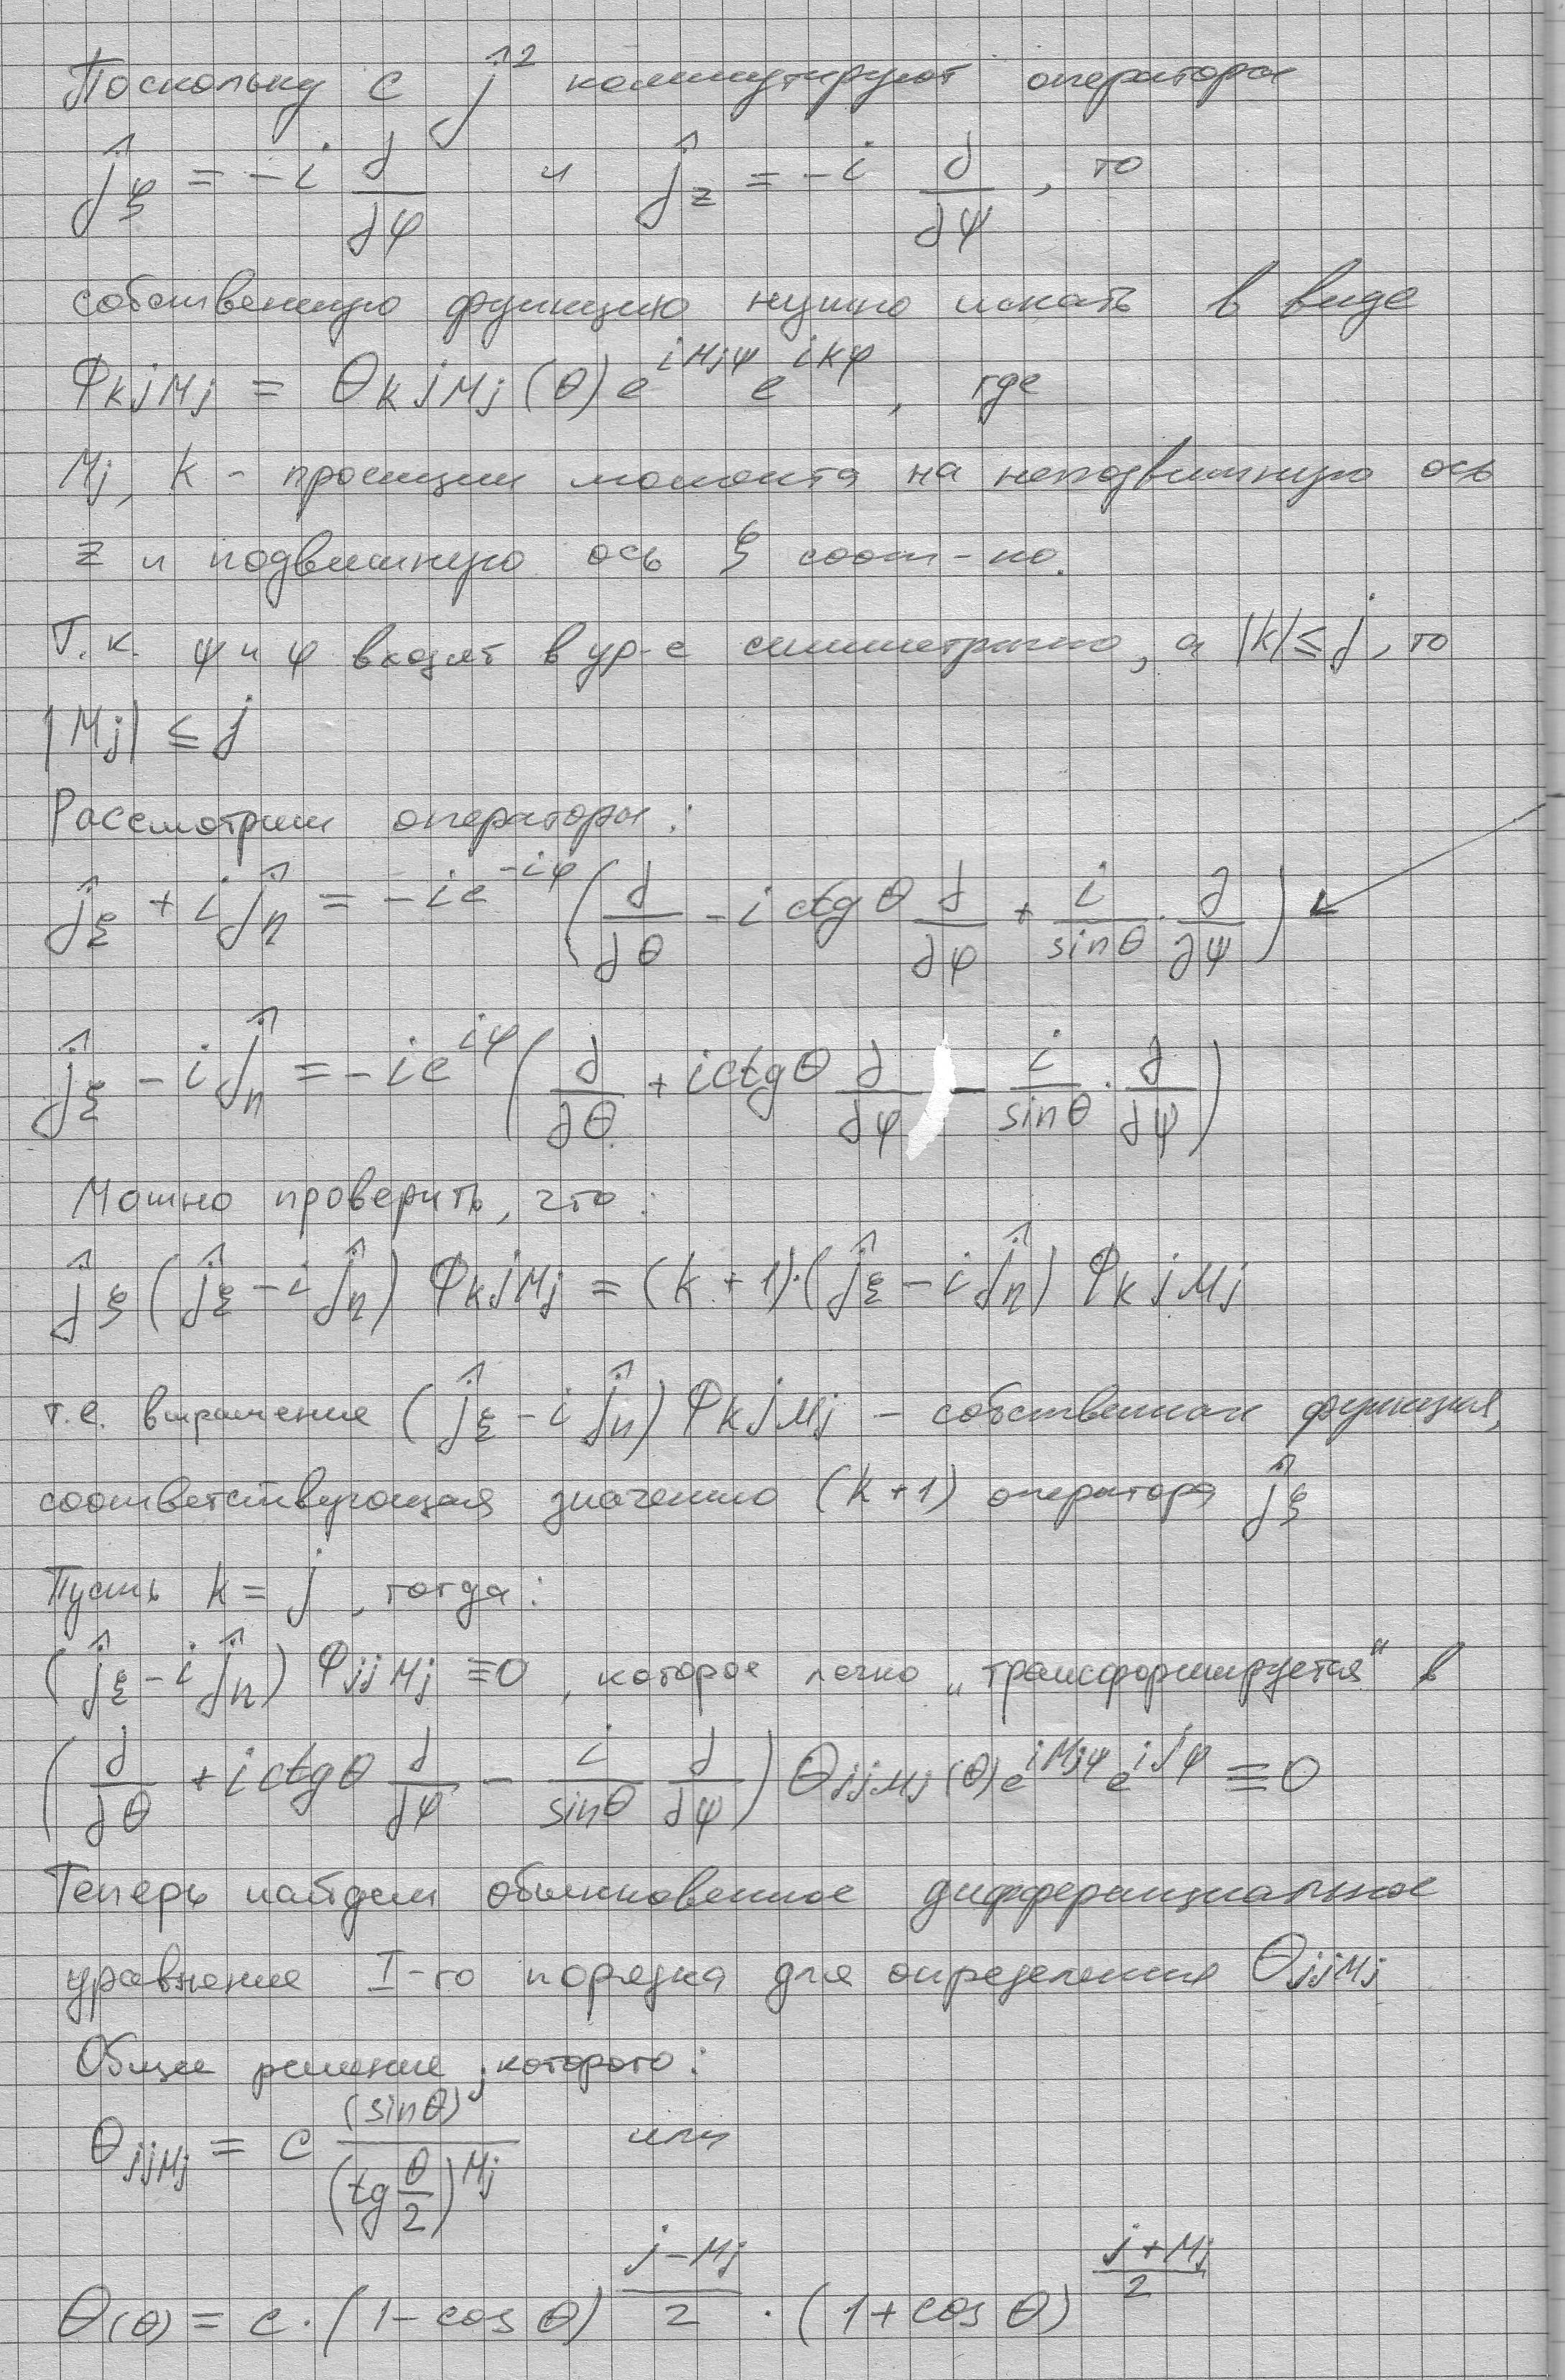 Поскольку с ĵ² коммутируют операторы
ĵ_ζ = -i ∂/∂φ и ĵ_z = -i ∂/∂ψ, то
собственную функцию нужно искать в виде
Φ_{KjMj} = Θ_{KjMj}(θ) e^{iMjψ} e^{iKφ}, где
Mj, K - проекции момента на неподвижную ось
z и подвижную ось ζ соот-но.
Т.к. ψ и φ входят в ур-е симметрично, а |k| ≤ j, то
|Mj| ≤ j
Рассмотрим операторы:
ĵ_ξ + iĵ_η = -ie^{-iφ} (∂/∂θ - i ctgθ ∂/∂φ + i/sinθ · ∂/∂ψ)
ĵ_ξ - iĵ_η = -ie^{iφ} (∂/∂θ + i ctgθ ∂/∂φ - i/sinθ · ∂/∂ψ)
Можно проверить, что:
ĵ_ζ (ĵ_ξ - iĵ_η) Φ_{KjMj} = (k+1)·(ĵ_ξ - iĵ_η) Φ_{KjMj}
т.е. выражение (ĵ_ξ - iĵ_η) Φ_{KjMj} - собственная функция,
соответствующая значению (k+1) оператора ĵ_ζ
Пусть k = j, тогда:
(ĵ_ξ - iĵ_η) Φ_{jjMj} ≡ 0, которое легко „трансформируется" в
(∂/∂θ + i ctgθ ∂/∂φ - i/sinθ ∂/∂ψ) Θ_{jjMj}(θ) e^{iMjψ} e^{ijφ} ≡ 0
Теперь найдем обыкновенное дифференциальное
уравнение I-го порядка для определения Θ_{jjMj}
Общее решение которого:
Θ_{jjMj} = c (sinθ)^j / (tg θ/2)^{Mj} или
Θ(θ) = c · (1-cosθ)^{(j-Mj)/2} · (1+cosθ)^{(j+Mj)/2}